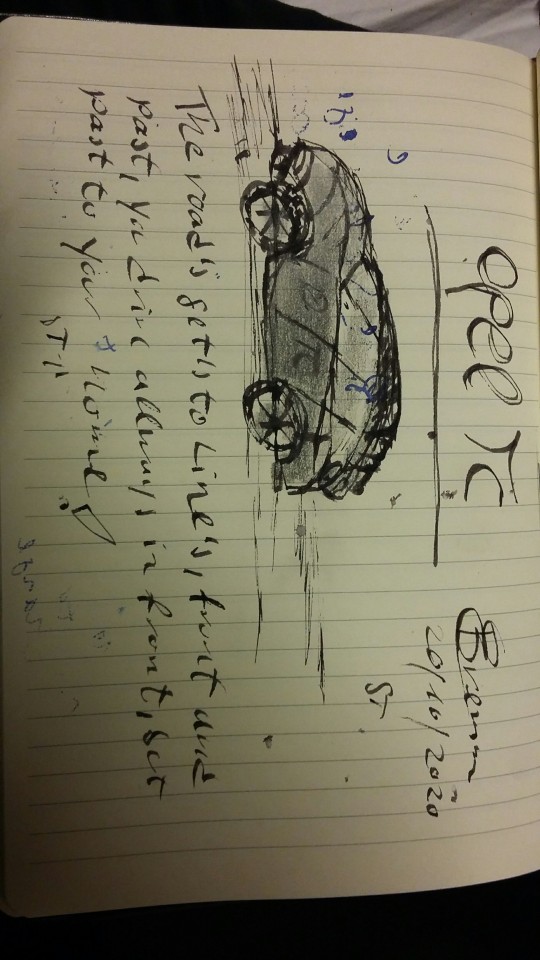 Opel TC
20/10/2020
ST
TC
The road's get's to Line's, front and
past, ya drive allways in front, bet
past to your Home
ST